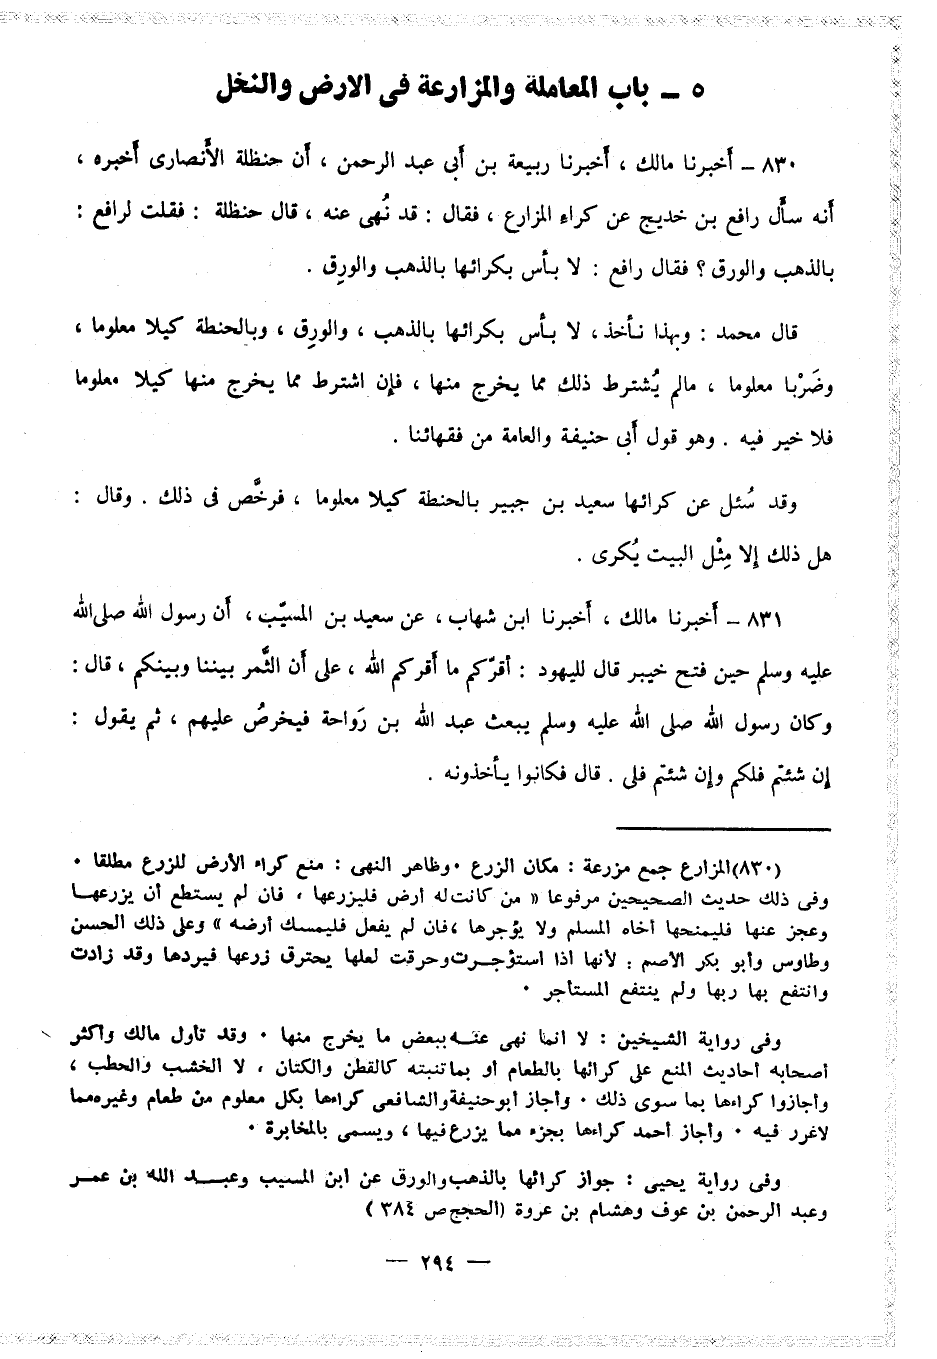 ٥ ــ باب المعاملة والمزارعة فى الارض والنخل
٨٣٠ ــ أخبرنا مالك ، أخبرنا ربيعة بن أبى عبد الرحمن ، أن حنظلة الأنصارى أخبره ،
أنه سأل رافع بن خديج عن كراء المزارع ، فقال : قد نُهى عنه ، قال حنظلة : فقلت لرافع :
بالذهب والورق ؟ فقال رافع : لا بأس بكرائها بالذهب والورِق .
قال محمد : وبهذا نأخذ ، لا بأس بكرائها بالذهب ، والورِق ، وبالحنطة كيلا معلوما ،
وضَرْبا معلوما ، مالم يُشترط ذلك مما يخرج منها ، فإن اشترط مما يخرج منها كيلا معلوما
فلا خير فيه . وهو قول أبى حنيفة والعامة من فقهائنا .
وقد سُئل عن كرائها سعيد بن جبير بالحنطة كيلا معلوما ، فرخَّص فى ذلك . وقال :
هل ذلك إلا مِثْل البيت يُكرى .
٨٣١ ــ أخبرنا مالك ، أخبرنا ابن شهاب ، عن سعيد بن المسيّب ، أن رسول الله صلى الله
عليه وسلم حين فتح خيبر قال لليهود : أقرّكم ما أقركم الله ، على أن الثَّمر بيننا وبينكم ، قال :
وكان رسول الله صلى الله عليه وسلم يبعث عبد الله بن رَواحة فيخرصُ عليهم ، ثم يقول :
إن شئتم فلكم وإن شئتم فلى . قال فكانوا يأخذونه .
(٨٣٠) المزارع جمع مزرعة : مكان الزرع . وظاهر النهى : منع كراء الأرض للزرع مطلقا .
وفى ذلك حديث الصحيحين مرفوعا « من كانت له أرض فليزرعها ، فان لم يستطع أن يزرعها
وعجز عنها فليمنحها أخاه المسلم ولا يؤجرها ، فان لم يفعل فليمسك أرضه » وعلى ذلك الحسن
وطاوس وأبو بكر الأصم : لأنها اذا استؤجرت وحرقت لعلها يحترق زرعها فيردها وقد زادت
وانتفع بها ربها ولم ينتفع المستأجر .
وفى رواية الشيخين : لا انما نهى عنه ببعض ما يخرج منها . وقد تأول مالك وأكثر
أصحابه أحاديث المنع على كرائها بالطعام أو بما تنبته كالقطن والكتان ، لا الخشب والحطب ،
وأجازوا كراءها بما سوى ذلك . وأجاز أبو حنيفة والشافعى كراءها بكل معلوم من طعام وغيره مما
لاغرر فيه . وأجاز أحمد كراءها بجزء مما يزرع فيها ، ويسمى بالمخابرة .
وفى رواية يحيى : جواز كرائها بالذهب والورق عن ابن المسيب وعبد الله بن عمر
وعبد الرحمن بن عوف وهشام بن عروة (الحجج ص ٣٨٤)
— ٢٩٤ —